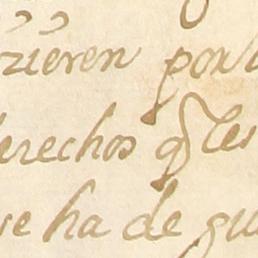 zieren por
derechos q les
se ha de gu